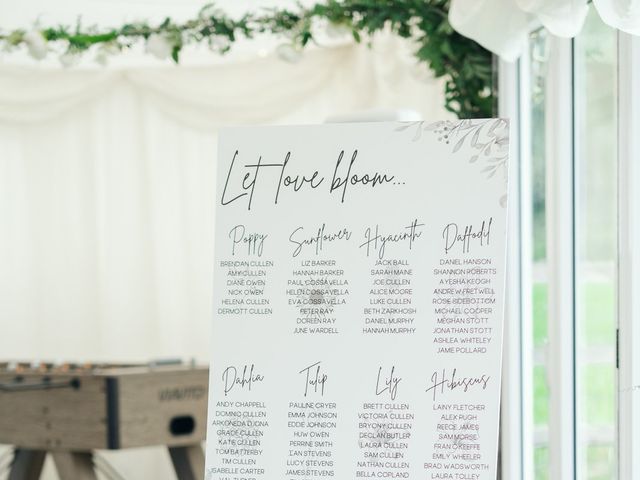 Let love bloom...
Poppy
BRENDAN CULLEN
AMY CULLEN
DIANE OWEN
NICK OWEN
HELENA CULLEN
DERMOTT CULLEN
Sunflower
LIZ BARKER
HANNAH BARKER
PAUL COSSAVELLA
HELEN COSSAVELLA
EVA COSSAVELLA
PETER RAY
DOREEN RAY
JUNE WARDELL
Hyacinth
JACK BALL
SARAH MAINE
JOE CULLEN
ALICE MOORE
LUKE CULLEN
BETH ZARKHOSH
DANIEL MURPHY
HANNAH MURPHY
Daffodil
DANIEL HANSON
SHANNON ROBERTS
AYESHA KEOGH
ANDREW FRETWELL
ROSE SIDEBOTTOM
MICHAEL COOPER
MEGHAN STOTT
JONATHAN STOTT
ASHLEA WHITELEY
JAMIE POLLARD
Dahlia
ANDY CHAPPELL
DOMINIC CULLEN
GRACE CULLEN
KATIE CULLEN
TOM BATTERBY
TIM CULLEN
ISABELLE CARTER
Tulip
PAULINE CRYER
EMMA JOHNSON
EDDIE JOHNSON
HUW OWEN
PERRINE SMITH
IAN STEVENS
LUCY STEVENS
JAMES STEVENS
Lily
BRETT CULLEN
VICTORIA CULLEN
BRYONY CULLEN
DECLAN BUTLER
LAURA CULLEN
SAM CULLEN
NATHAN CULLEN
BELLA COPLAND
Hibiscus
LAINY FLETCHER
ALEX RUGH
REECE JAMES
SAM MORSE
FRAN O'KEEFFE
EMILY WHEELER
BRAD WADSWORTH
LAURA TOLLEY